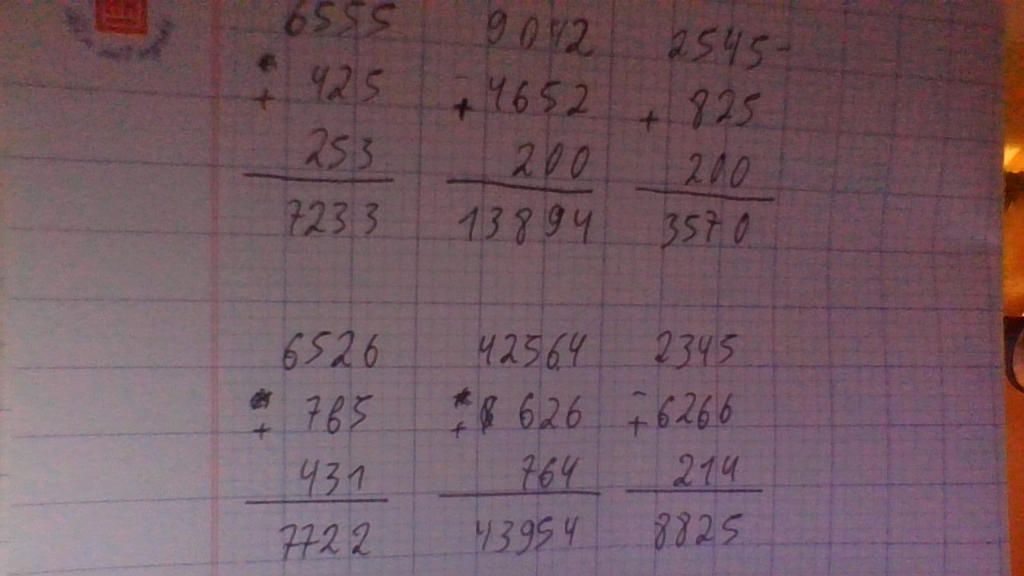 6555 9042 2545-
+ 425 + 4652 + 825
253 200 200
7233 13894 3570
6526 42564 2345
+ 765 + 626 + 6266
431 764 214
7722 43954 8825